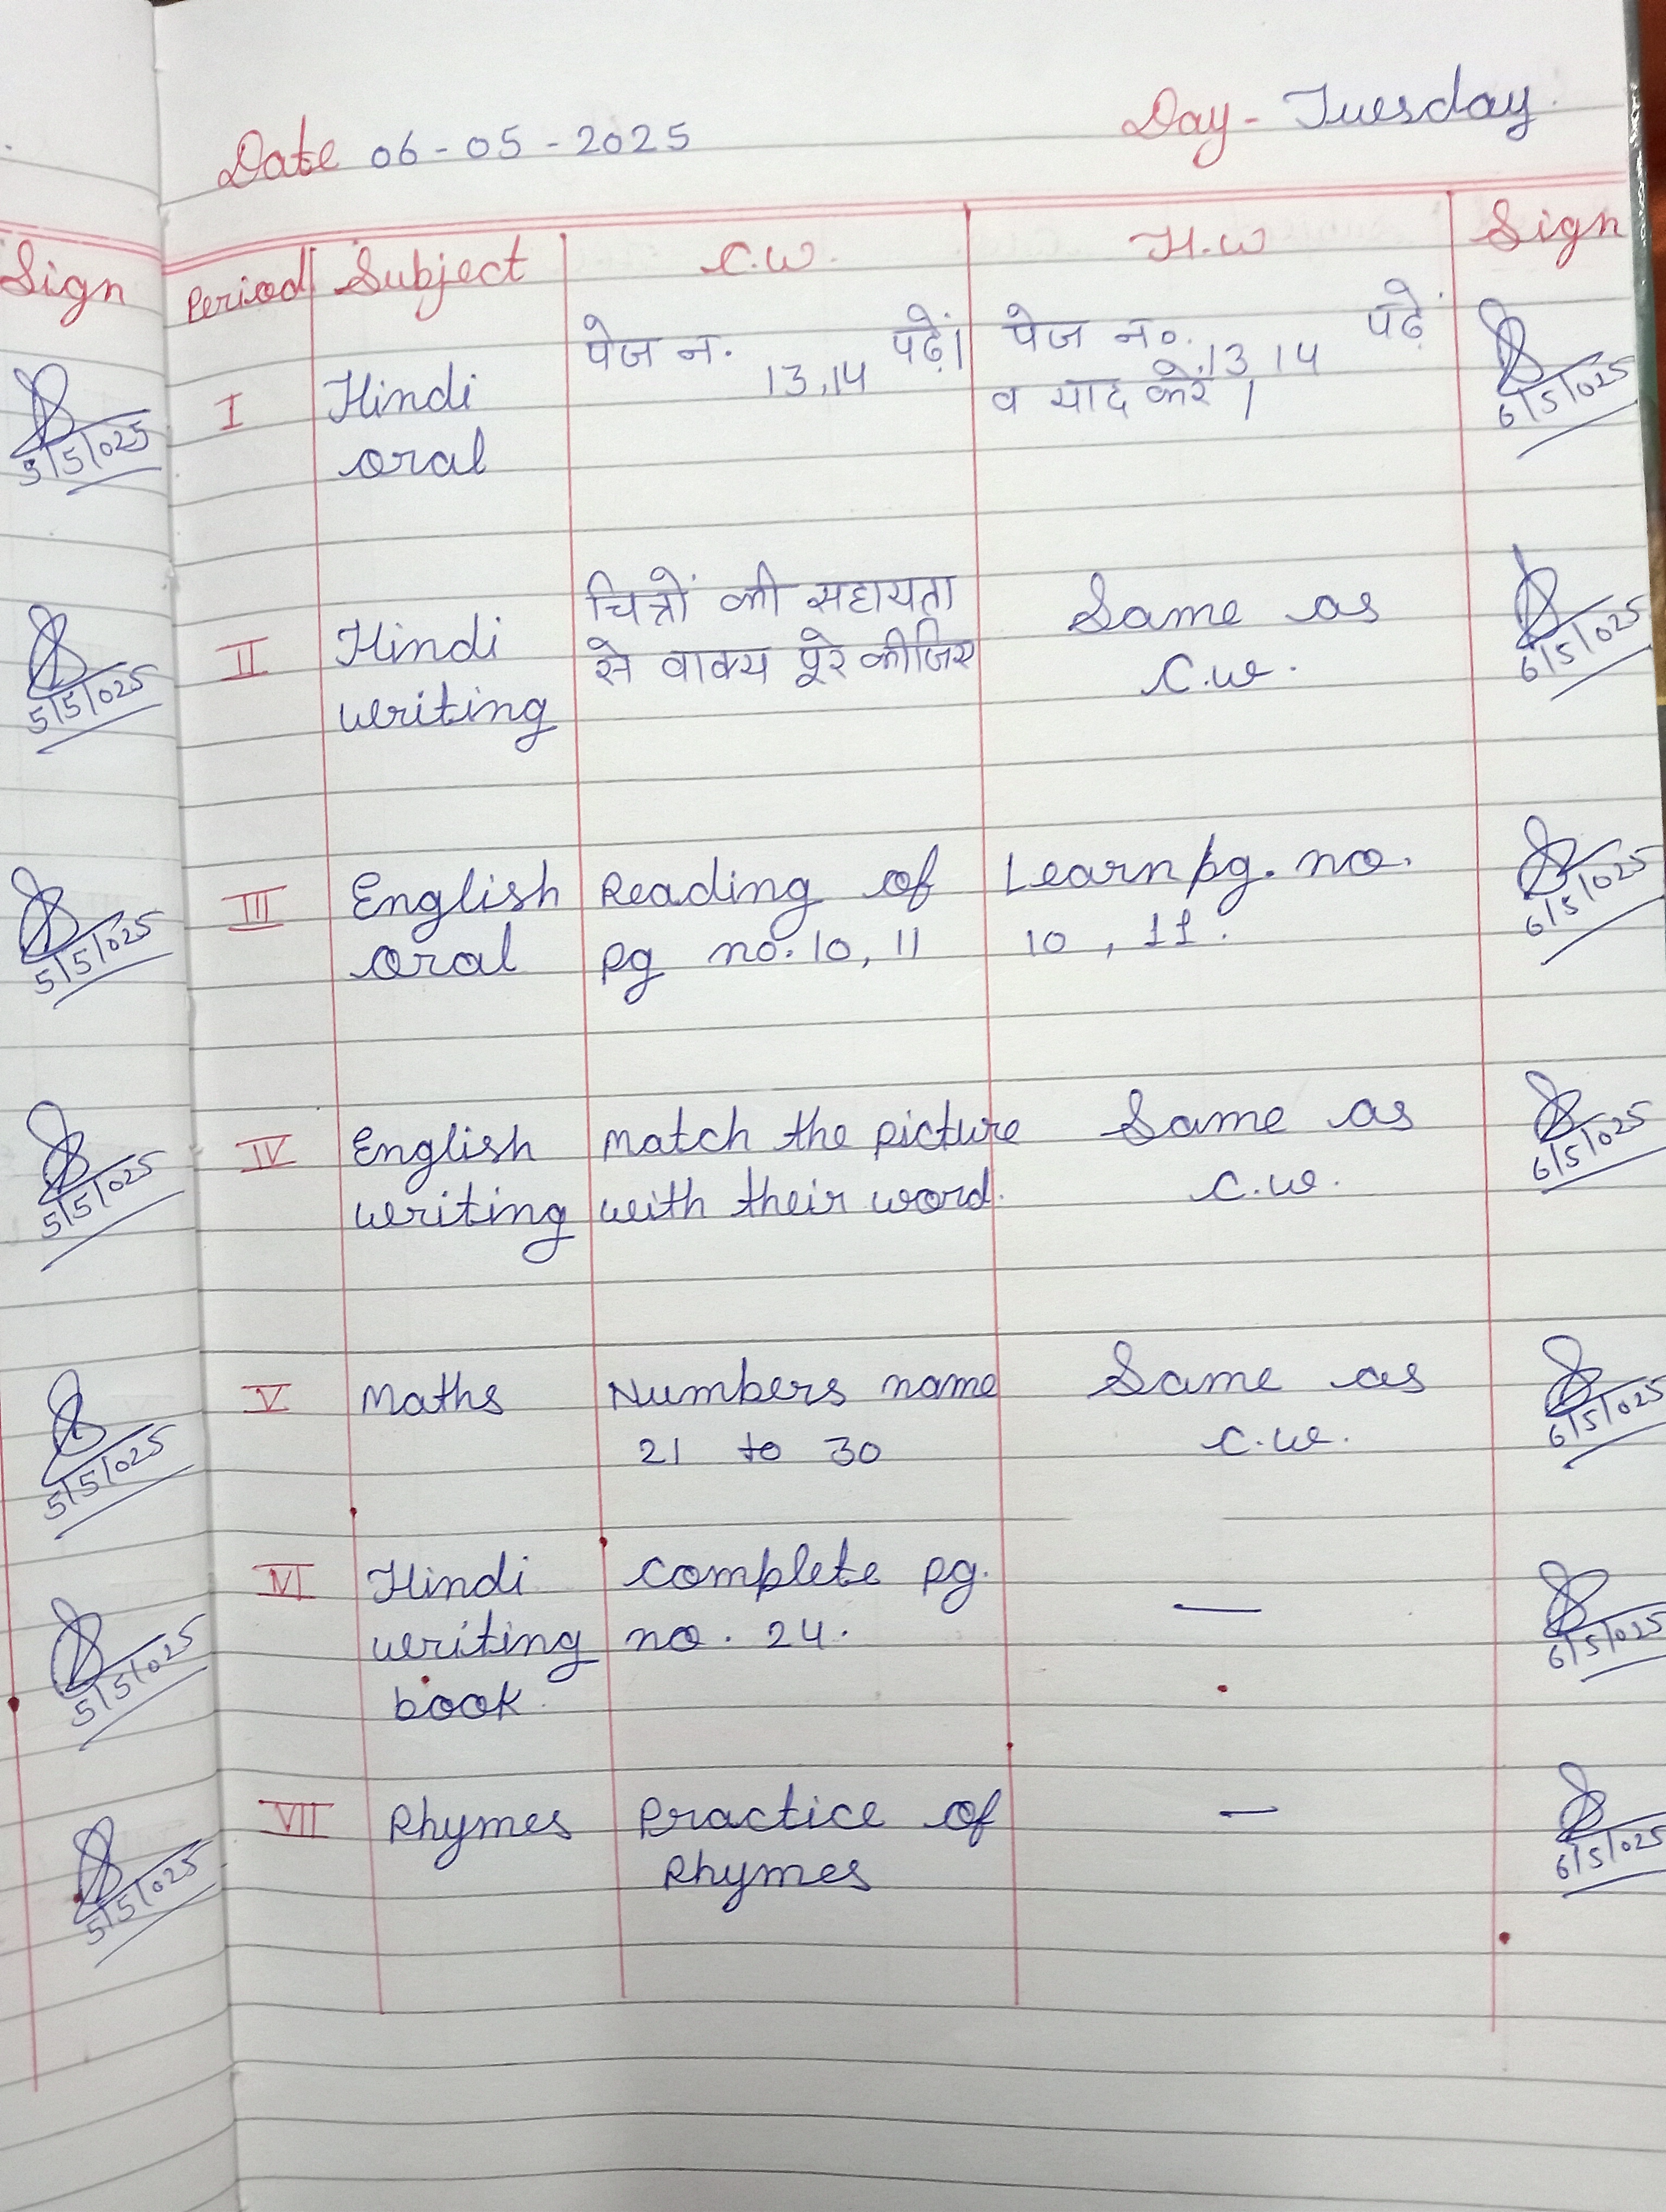 Date 06-05-2025 Day-Tuesday
Sign Period Subject C.W. H.W Sign
पेज न. 13,14 पढ़ें। पेज न०. 13 14 पढ़ें
I Hindi व याद करें। 6/5/025
5/5/025 oral
चित्रों की सहायता Same as
II Hindi से वाक्य पूरे कीजिए C.W. 6/5/025
5/5/025 writing
III English Reading of Learn pg. no. 6/5/025
5/5/025 oral pg no. 10, 11 10, 11.
IV English Match the picture Same as 6/5/025
5/5/025 writing with their word. C.W.
V Maths Numbers name Same as 6/5/025
5/5/025 21 to 30 C.W.
VI Hindi Complete pg. —
5/5/025 writing no. 24. 6/5/025
book.
VII Rhymes Practice of —
5/5/025 Rhymes 6/5/025